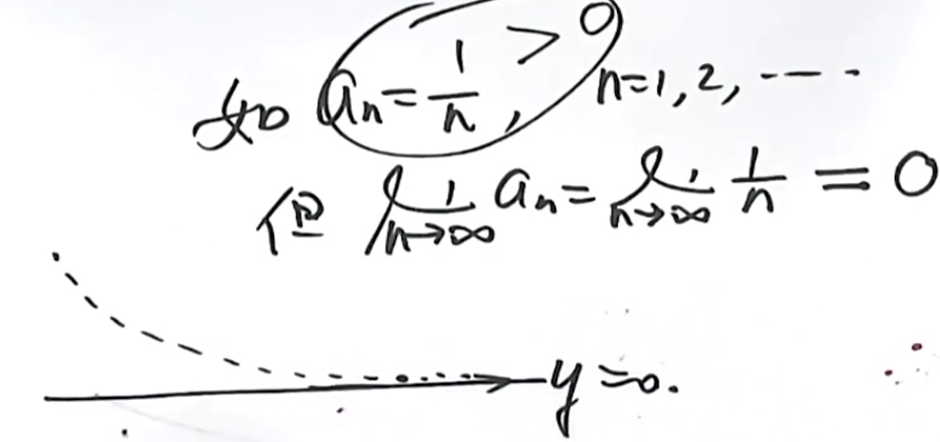 如 aₙ = 1/n > 0, n=1,2,····
但 lim n→∞ aₙ = lim n→∞ 1/n = 0
y=0.